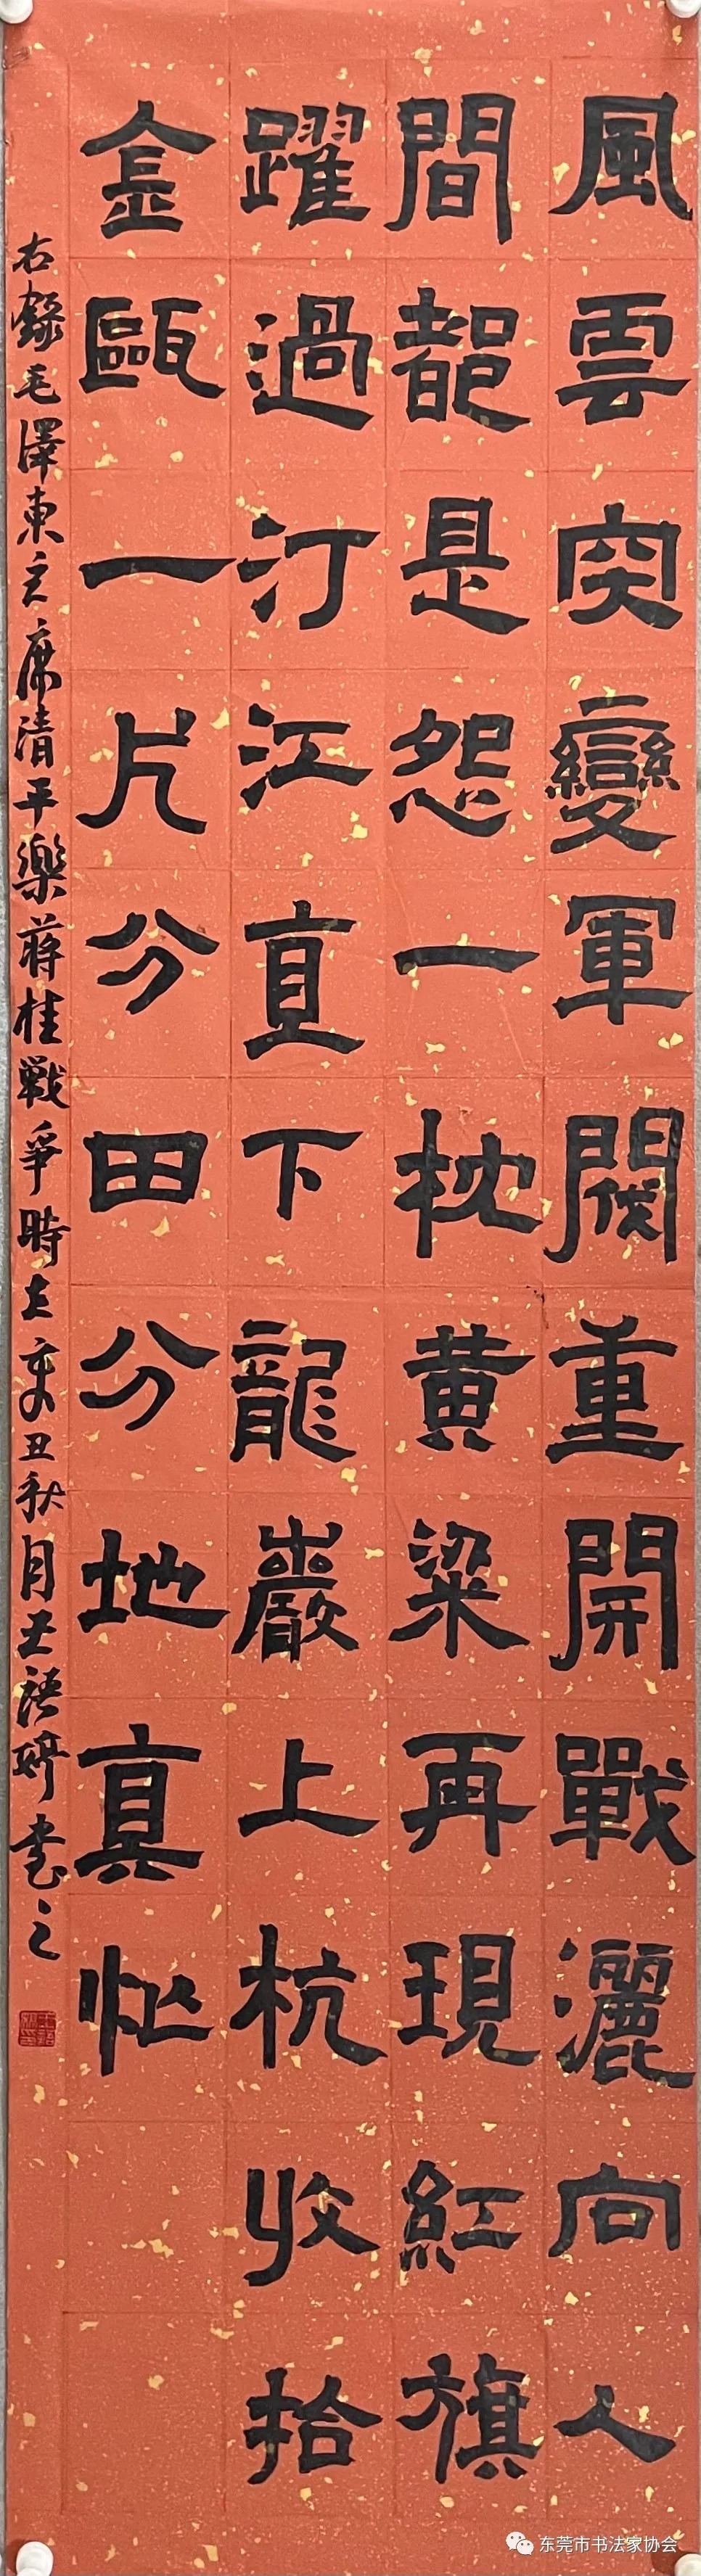 風雲突變軍閥重開戰灑向人
間都是怨一枕黄粱再現紅旗
躍過汀江直下龍巖上杭收拾
金甌一片分田分地真忙
右錄毛澤東主席清平樂蔣桂戰爭時在辛丑秋月王語書之
东莞市书法家协会